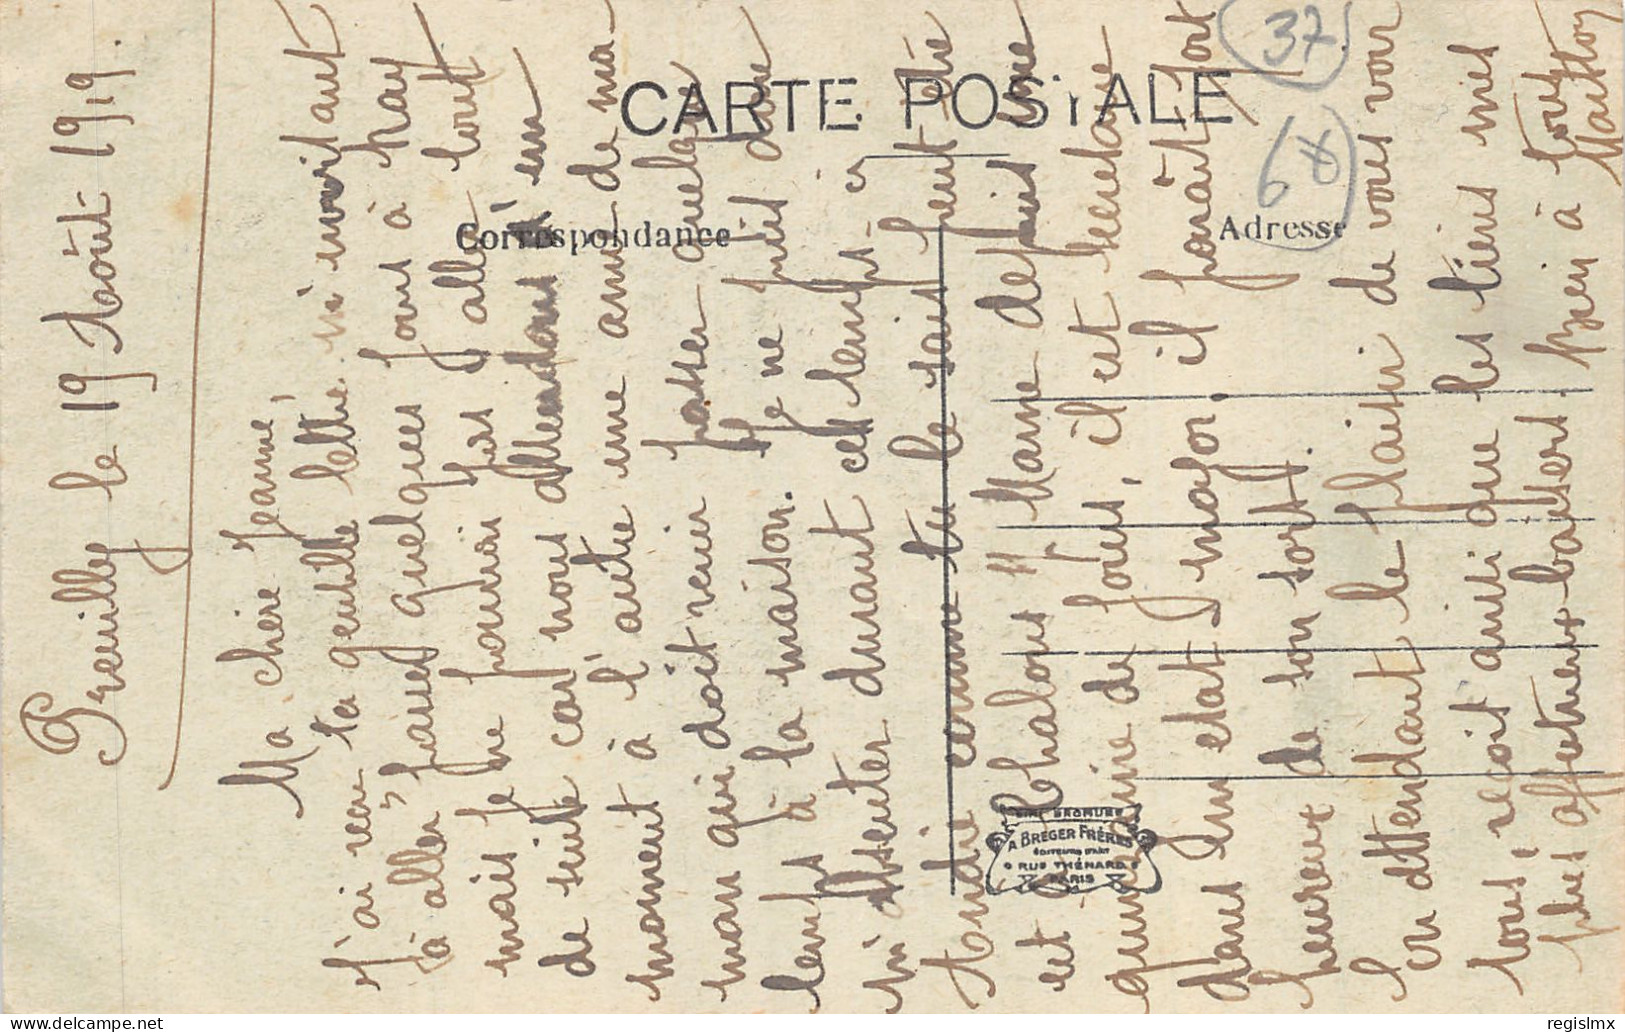 Preuilly le 19 Août 1919.
Ma chère Jeanne,
J'ai reçu ta gentille lettre m'invitant
à aller passer quelques jours à Nay
mais je ne pourrai pas y aller tout
de suite car nous attendons d'un
moment à l'autre une amie de ma-
man qui doit venir passer quelque
temps à la maison. Je ne puis donc
m'absenter durant ces temps-ci
André comme tu le sais peut-être
est à Chalons s/ Marne depuis une
quinzaine de jours, il est secrétaire
dans un état-major, il paraît fort
heureux de son sort.
En attendant le plaisir de vous voir
tous, reçoit ainsi que les tiens mes
plus affectueux baisers. Bien à tous
CARTE POSTALE
Correspondance
Adresse
37
68
BROMURE
A BREGER FRÈRES
ÉDITEURS D'ART
9 RUE THÉNARD 9
PARIS
delcampe.net
regislmx